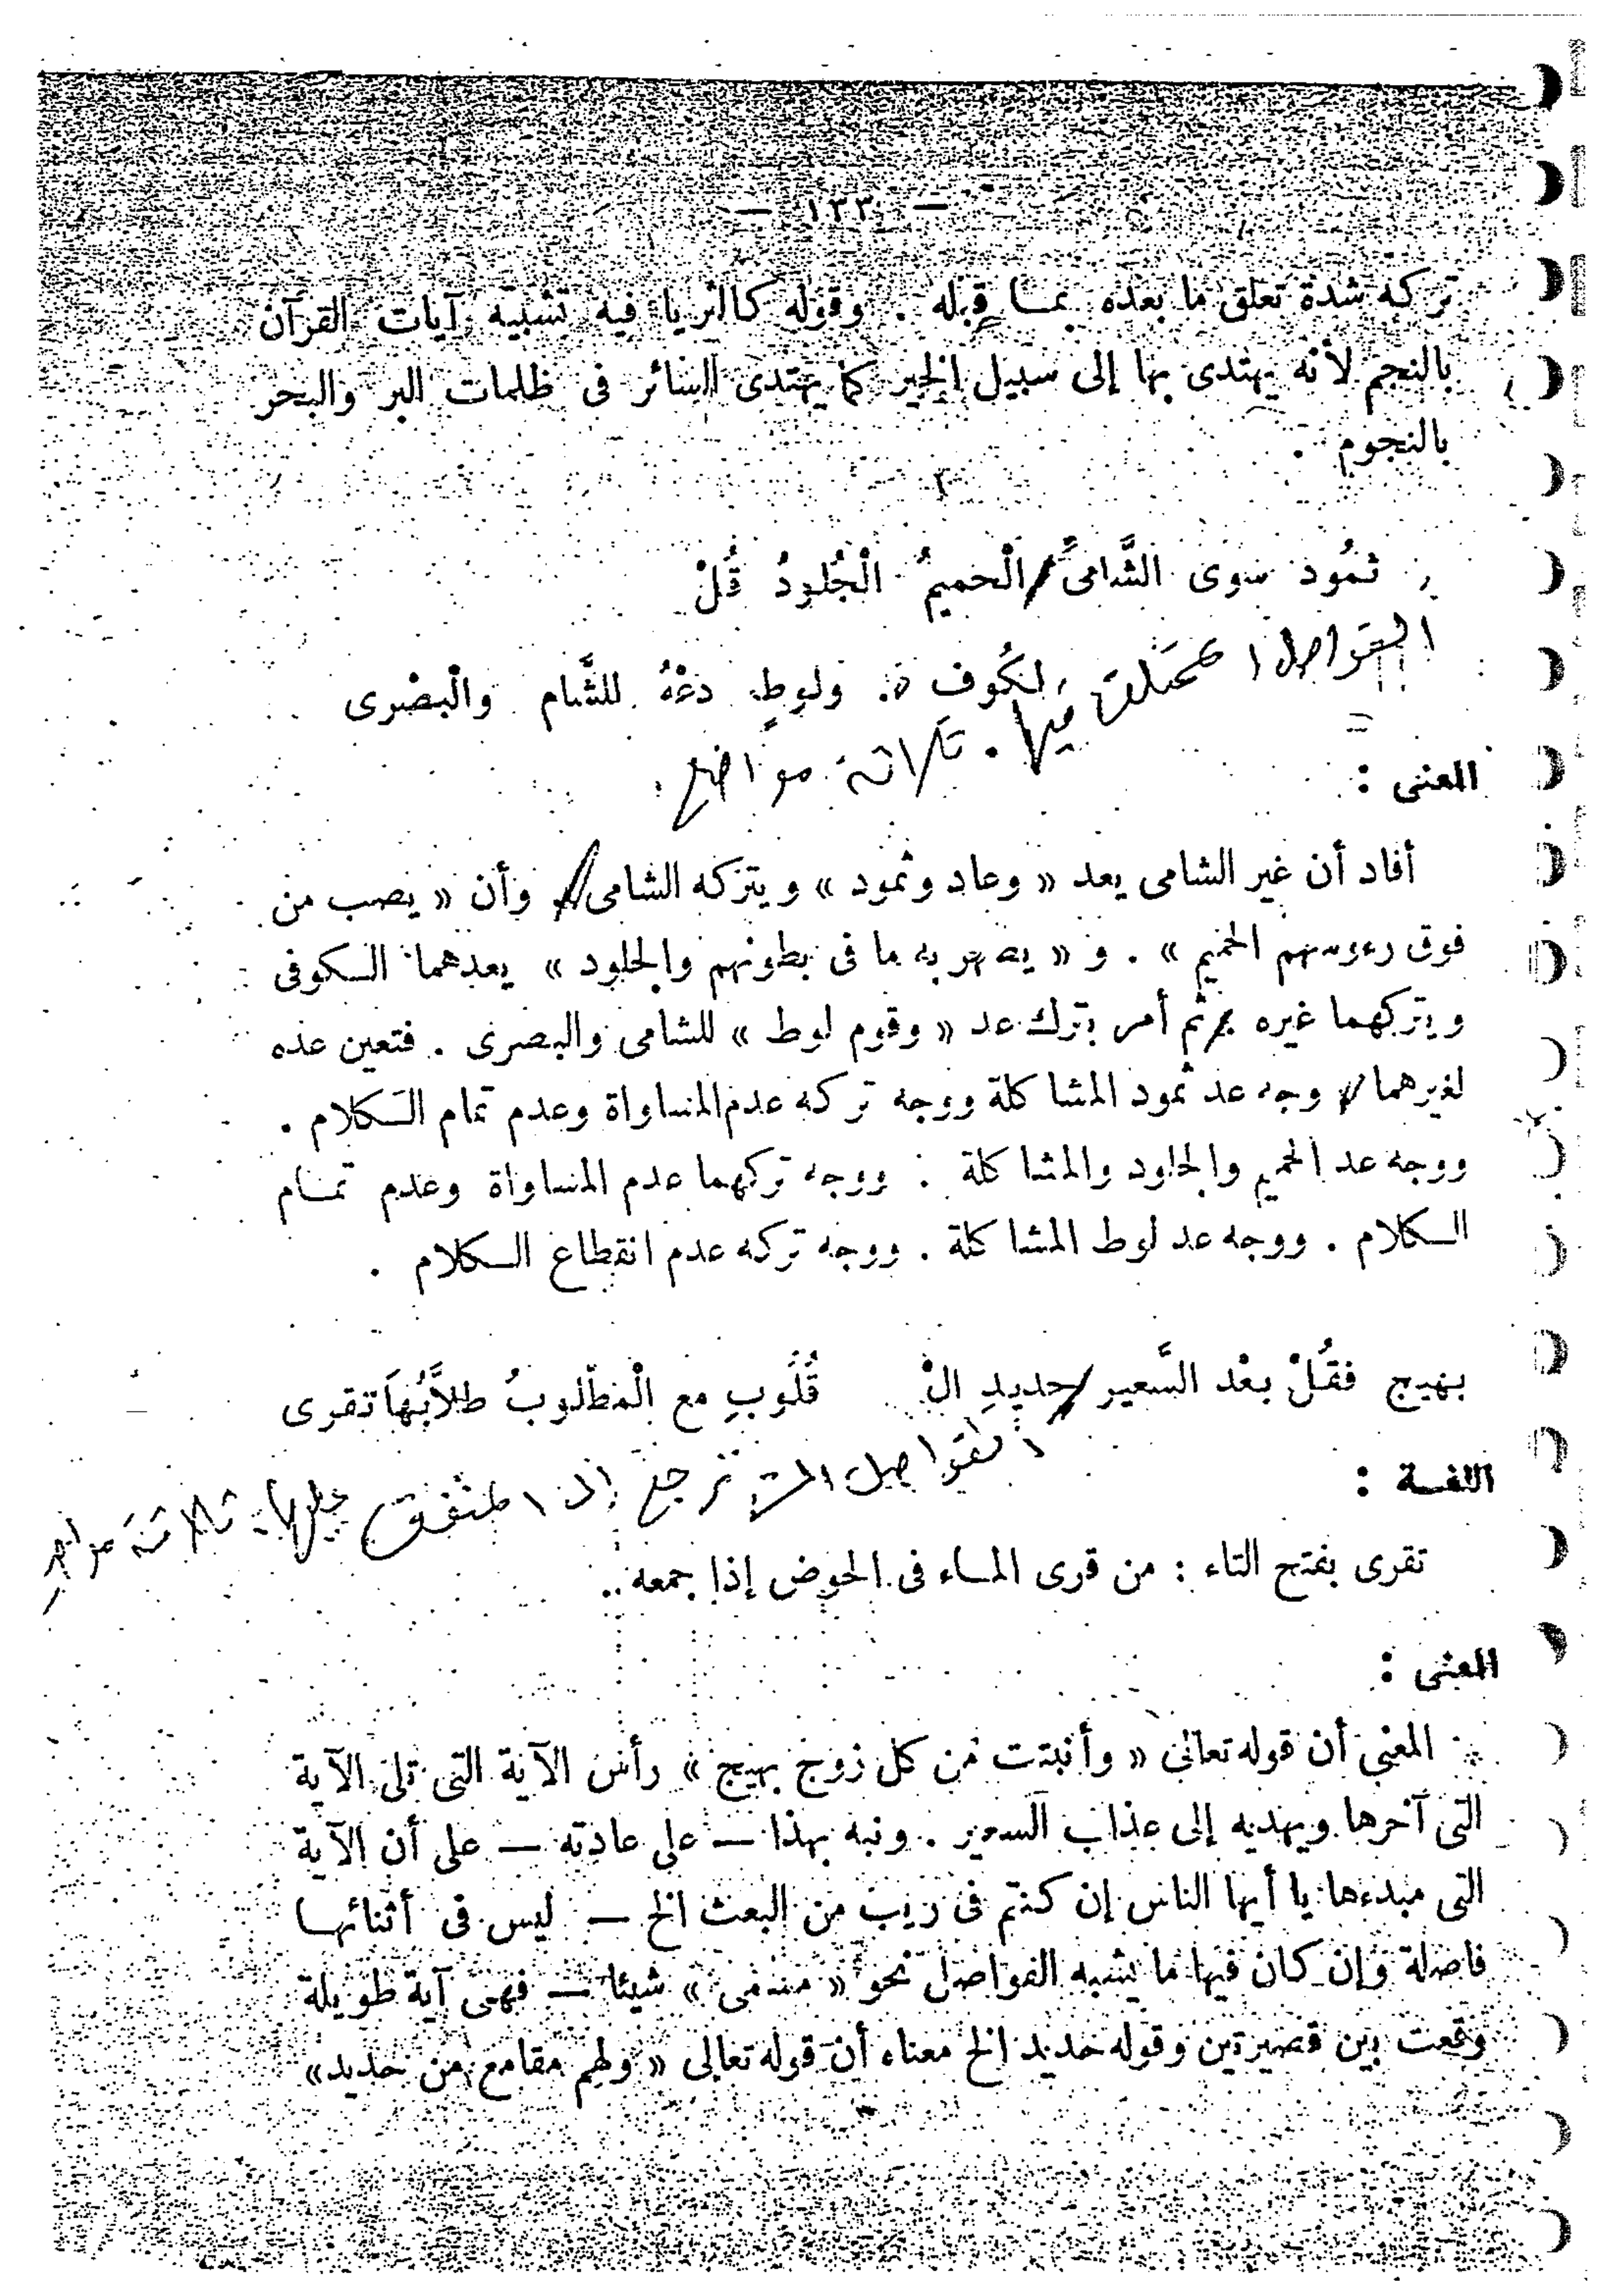 — ١٣٣ —
تركه شدة تعلق ما بعده بما قبله . وقوله كالثريا فيه تشبيه آيات القرآن
بالنجم لأنه يهتدى بها إلى سبيل الخير كما يهتدى السائر فى ظلمات البر والبحر
بالنجوم .
ثمُود سوى الشَّامىِّ الْحميمُ الْجُلودُ قُلْ
الفواصل المختلف فيها . ثلاثة مواضع .
لكُوفٍ . ولوطٍ دعْهُ للشَّام والْبصْرى
المعنى :
أفاد أن غير الشامى يعد « وعاد وثمود » ويتركه الشامى وأن « يصب من
فوق رءوسهم الحميم » . و « يصهر به ما فى بطونهم والجلود » يعدهما الكوفى
ويتركهما غيره ثم أمر بترك عد « وقوم لوط » للشامى والبصرى . فتعين عده
لغيرهما وجه عد ثمود المشاكلة ووجه تركه عدم المساواة وعدم تمام الكلام .
ووجه عد الحميم والجلود والمشاكلة : ووجه تركهما عدم المساواة وعدم تمام
الكلام . ووجه عد لوط المشاكلة . ووجه تركه عدم انقطاع الكلام .
بهيج فقُلْ بعْد السَّعير حديدِ الْ قُلُوبِ مع الْمطْلوبُ طلاَّبُهَا تقرى
الفواصل التى ترجع إلى المتفق عليها ثلاثة مواضع
اللغة :
تقرى بفتح التاء : من قرى الماء فى الحوض إذا جمعه .
المعنى :
المعنى أن قوله تعالى « وأنبتت من كل زوج بهيج » رأس الآية التى تلى الآية
التى آخرها ويهديه إلى عذاب السعير . ونبه بهذا — على عادته — على أن الآية
التى مبدءها يا أيها الناس إن كنتم فى ريب من البعث الخ — ليس فى أثنائها
فاصلة وإن كان فيها ما يشبه الفواصل نحو « مسمى » شيئا — فهى آية طويلة
وقعت بين قصيرتين وقوله حديد الخ معناه أن قوله تعالى « ولهم مقامع من حديد »